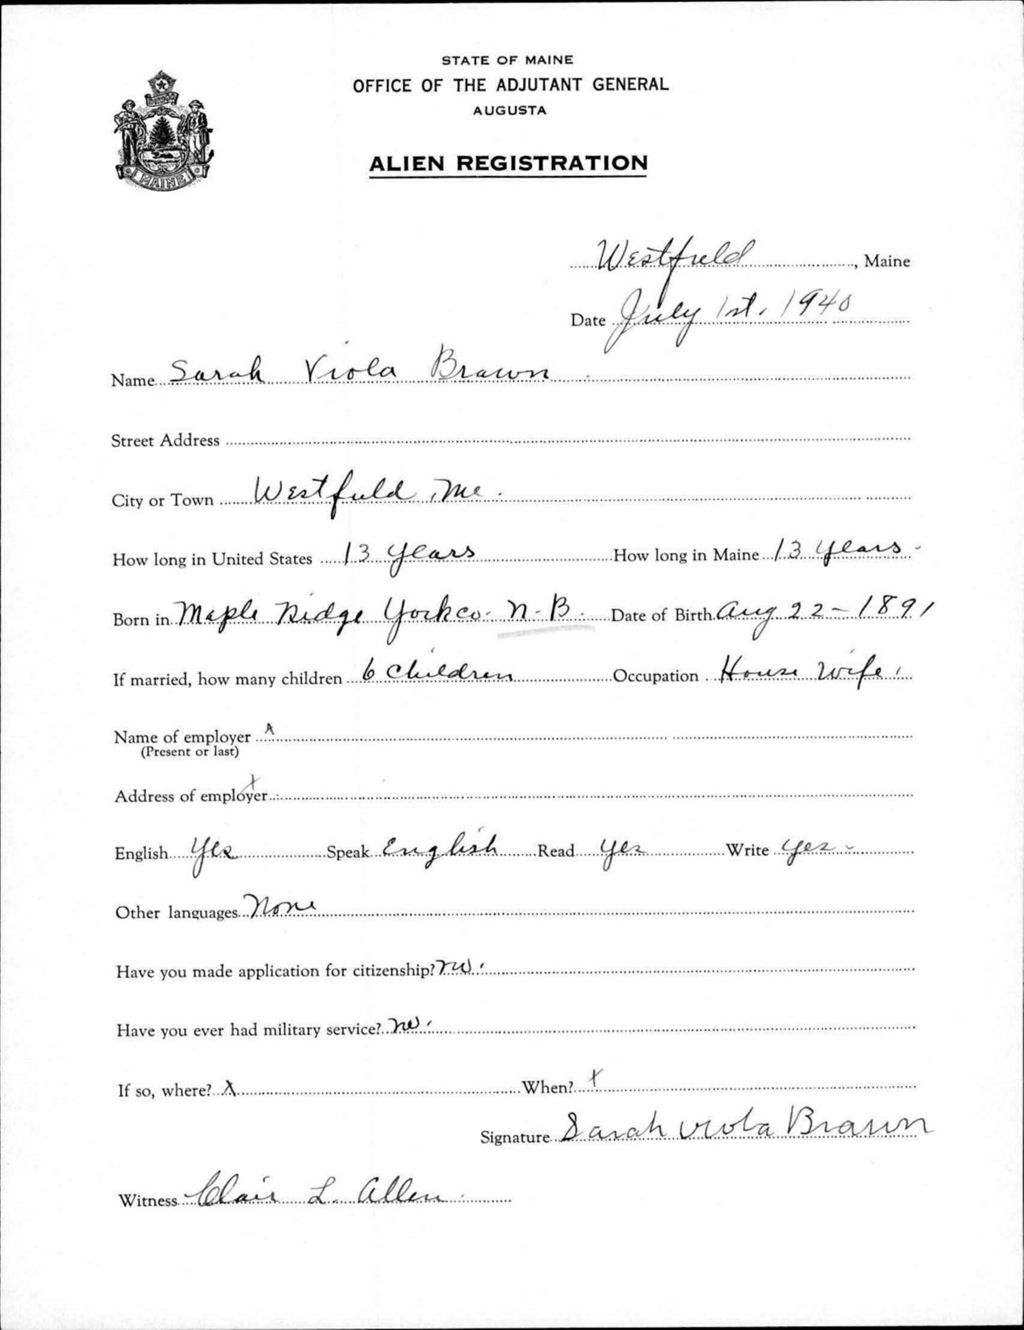 STATE OF MAINE
OFFICE OF THE ADJUTANT GENERAL
AUGUSTA
ALIEN REGISTRATION
MAINE
Westfield, Maine
Date July 1st. 1940
Name Sarah Viola Brawn
Street Address
City or Town Westfield, Me.
How long in United States 13 years How long in Maine 13 years
Born in Maple Ridge York co. N-B. Date of Birth Aug 22-1891
If married, how many children 6 children Occupation House Wife.
Name of employer x
(Present or last)
Address of employer x
English Yes Speak English Read yes Write yes
Other languages None
Have you made application for citizenship? no.
Have you ever had military service? no.
If so, where? x When? x
Signature Sarah Viola Brawn
Witness Clair L. Allen.